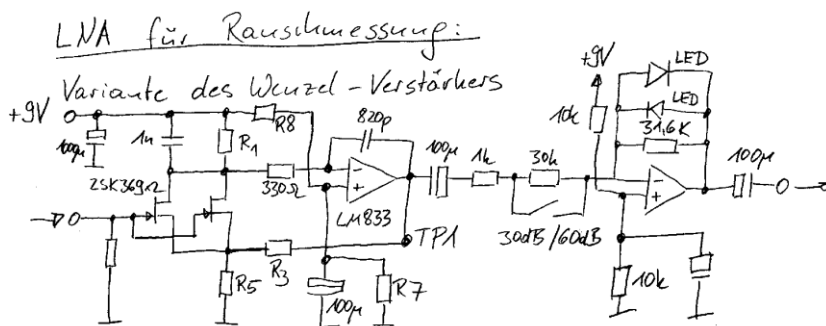 LNA für Rauschmessung:
Variante des Wenzel-Verstärkers
+9V
100µ
1n
R1
R8
820p
2SK369Ω
330Ω
-
+
LM833
100µ
1k
30k
30dB/60dB
TP1
R3
R5
100µ
R7
+9V
10k
LED
LED
31,6K
-
+
100µ
10k